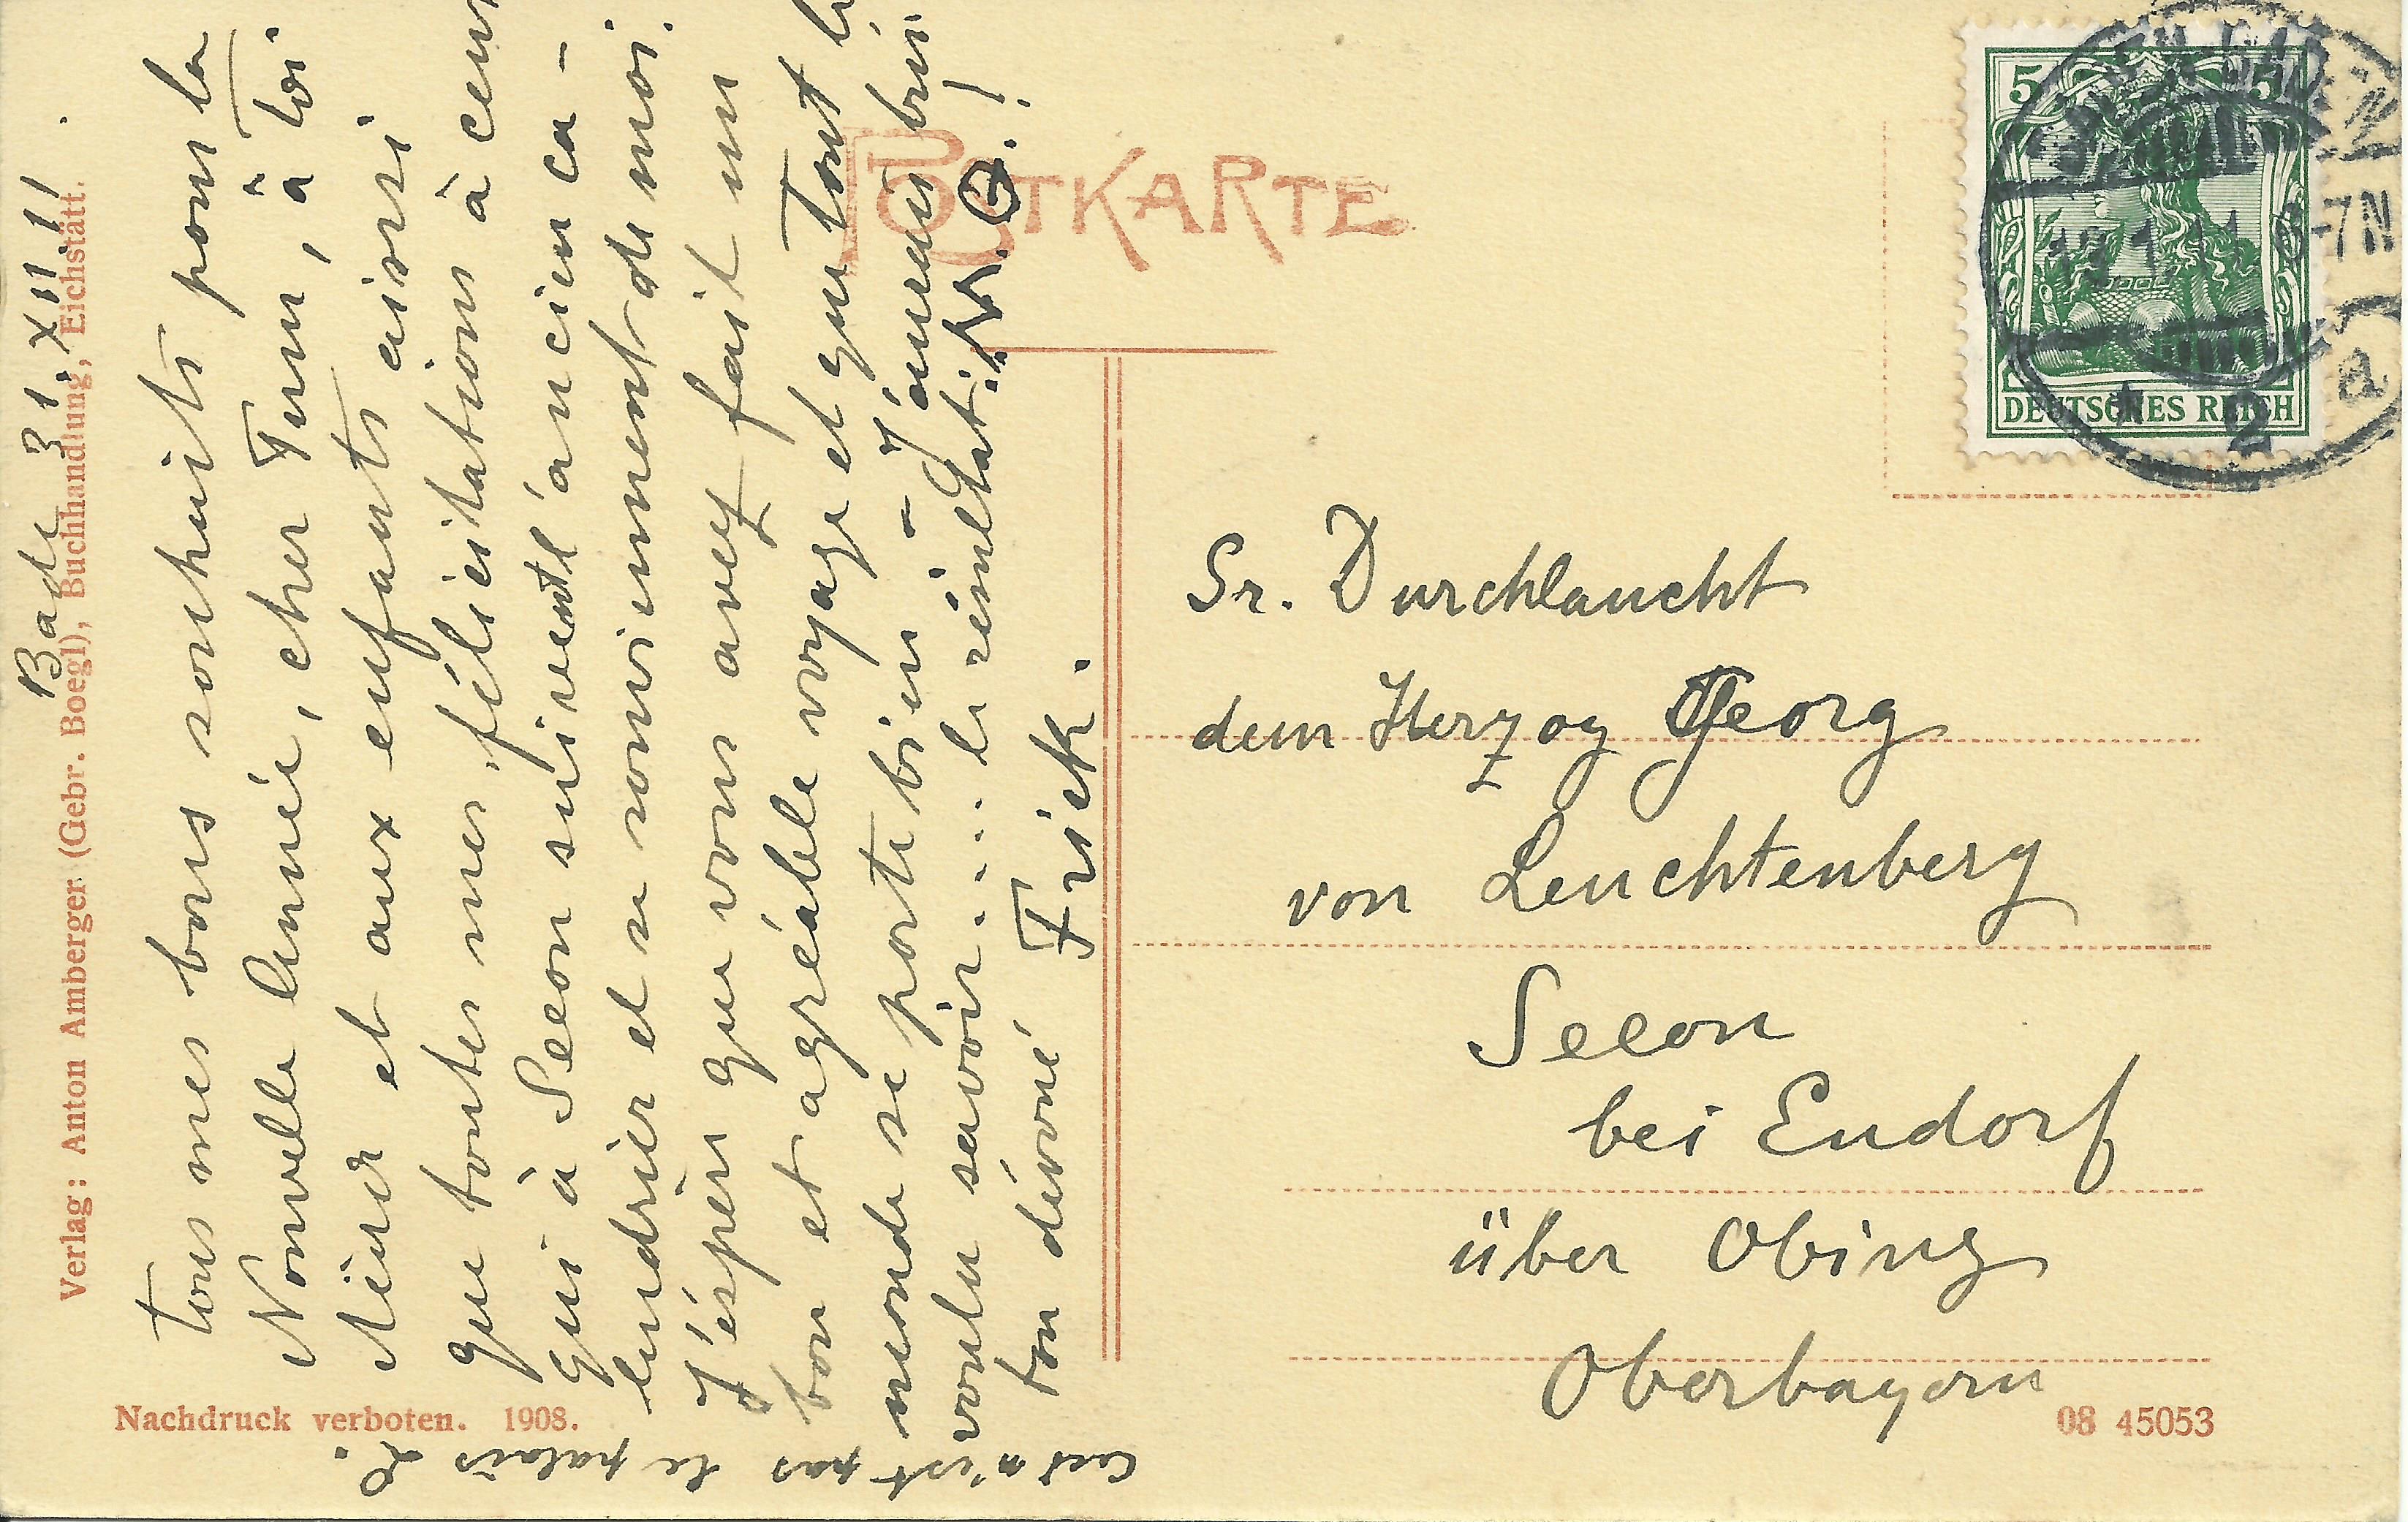 POSTKARTE
5
5
DEUTSCHES REICH
-7N
2
a
Sr. Durchlaucht
dem Herzog Georg
von Leuchtenberg
Seeon
bei Endorf
über Obing
Oberbayern
08 45053
Nachdruck verboten. 1908.
Verlag: Anton Amberger (Gebr. Boegl), Buchhandlung, Eichstätt.
Bade 31.XII.!!
Tous mes bons souhaits pour la
Nouvelle Année, cher Turn, à toi
et aux enfants ainsi
que toutes mes félicitations à ceux
qui à Seeon suivent l'ancien ca-
lendrier et se souviennent de moi.
J'éspère que vous avez fait un
bon et agréable voyage et que tout le
monde se porte bien - J'aurais bien
voulu savoir .... le résultat!!
ton dévoué Frick.
Ceci n'est pas le palais
L.